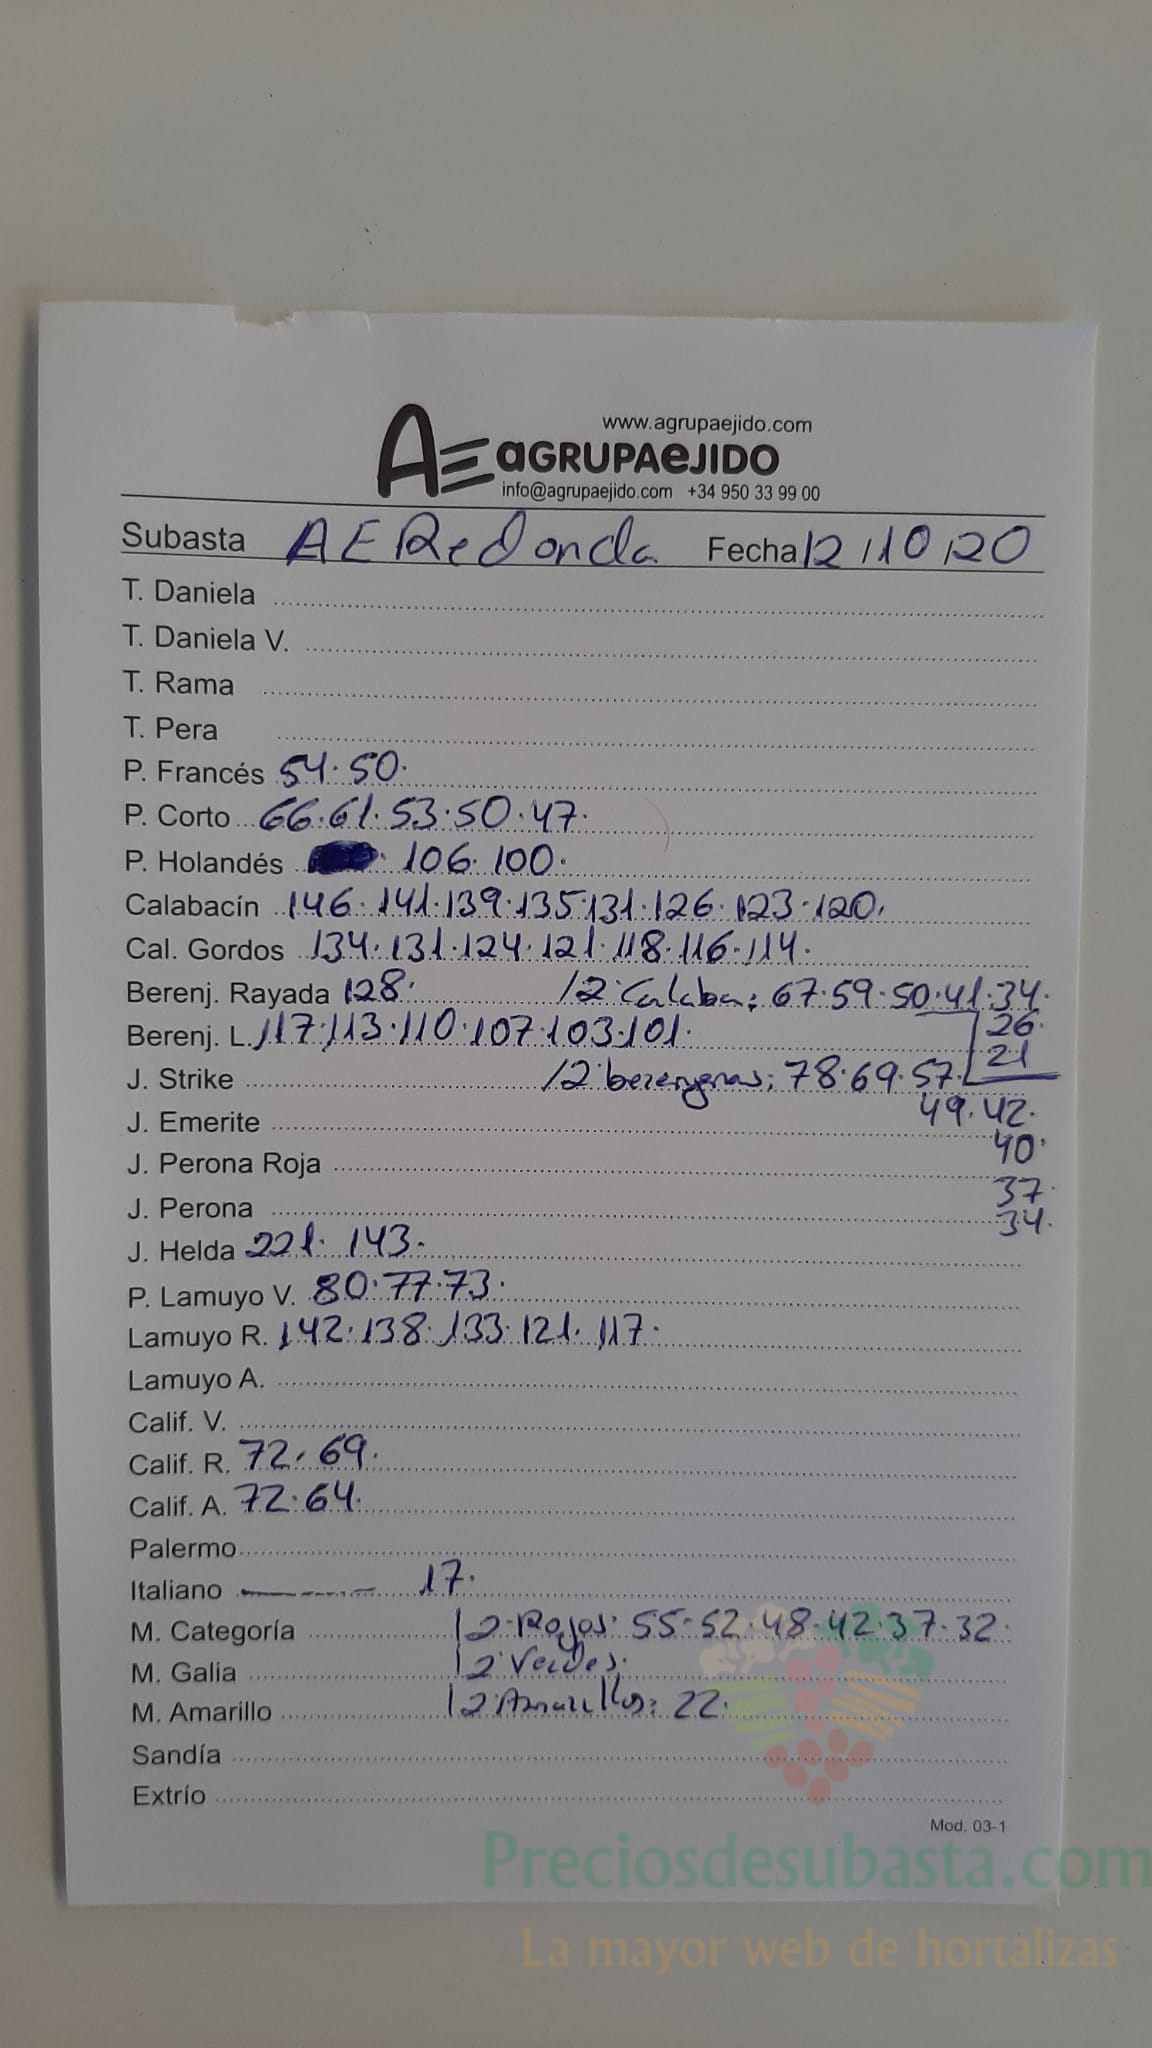 www.agrupaejido.com
AE aGRUPAeJIDO
info@agrupaejido.com +34 950 33 99 00
Subasta AE Redonda Fecha 12/10/20
T. Daniela
T. Daniela V.
T. Rama
T. Pera
P. Francés 54.50.
P. Corto 66.61.53.50.47.
P. Holandés 106.100.
Calabacín 146.141.139.135.131.126.123.120.
Cal. Gordos 134.131.124.121.118.116.114.
Berenj. Rayada 128. /2ªCalaba: 67.59.50.41.34.
26.
Berenj. L. 117.113.110.107.103.101.
21
J. Strike /2ªberengenas: 78.69.57.
49.42.
J. Emerite
40.
J. Perona Roja
37.
J. Perona
34.
J. Helda 221. 143.
P. Lamuyo V. 80.77.73.
Lamuyo R. 142.138.133.121.117.
Lamuyo A.
Calif. V.
Calif. R. 72.69.
Calif. A. 72.64.
Palermo
Italiano 17.
M. Categoría /2ªRojos: 55.52.48.42.37.32.
M. Galia /2ªVerdes:
M. Amarillo /2ªAmarillos: 22.
Sandía
Extrío
Mod. 03-1
Preciosdesubasta.com
La mayor web de hortalizas